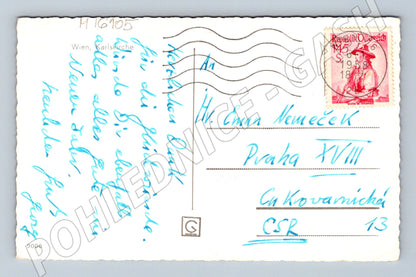 M 16105
Wien, Karlskirche
Herzlichen Dank
für die Glückwünsche.
Wünsche Dir ebenfalls
alles, alles Gute im
Neuen Jahr.
Herzlichen Gruß
Georg
An
Hr. Emka Nemeček
Praha XVIII
Cukrovarnická
ČSR 13
Republik Österreich
POHLEDNICE - GMCH